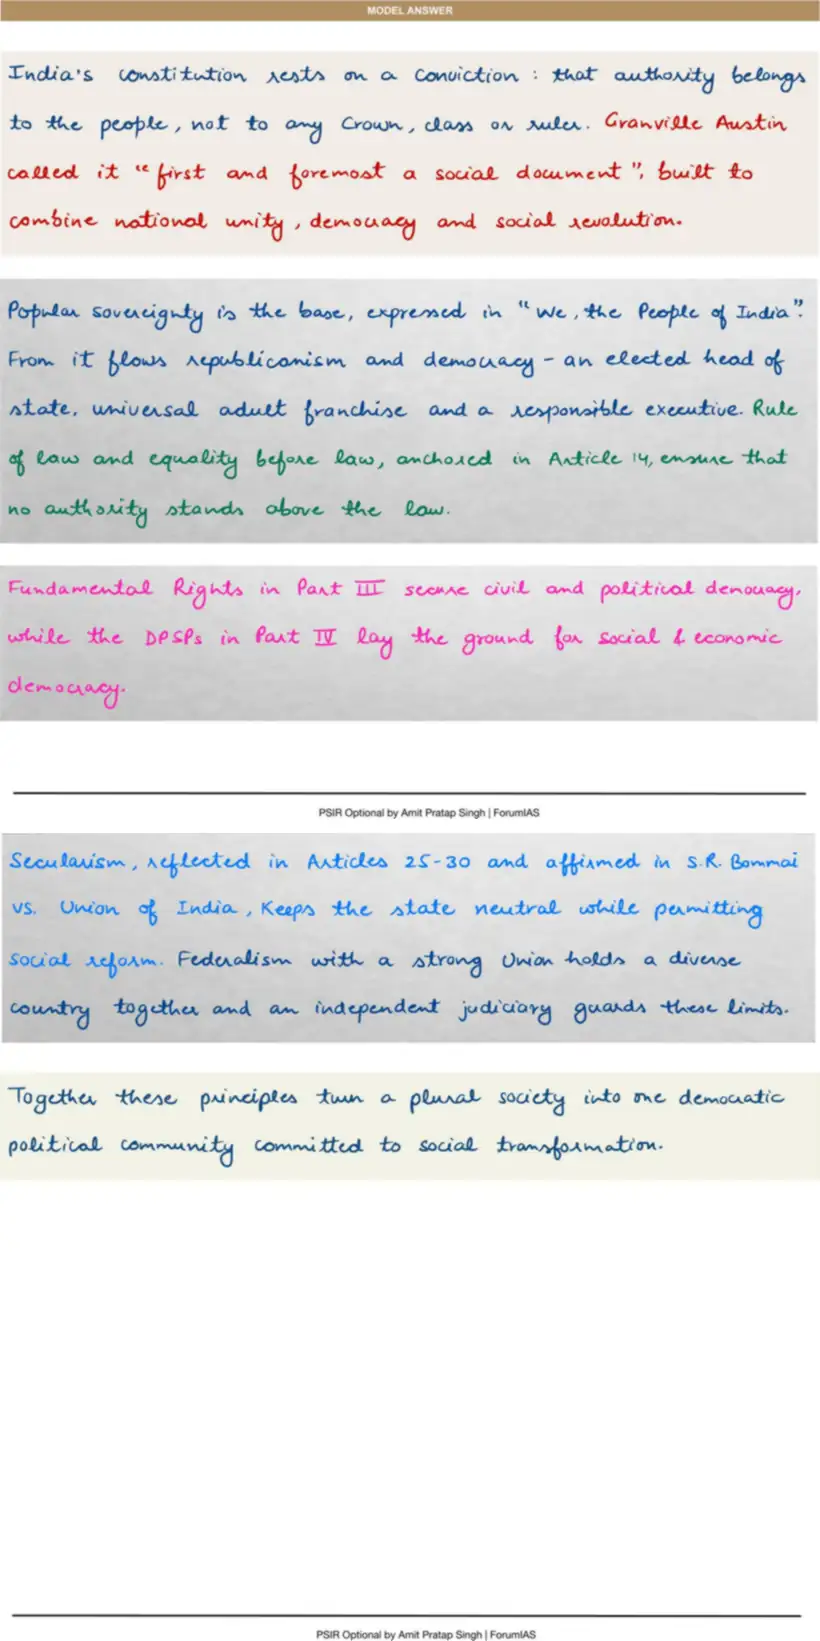 MODEL ANSWER
India's constitution rests on a conviction : that authority belongs
to the people, not to any Crown, class or ruler. Granville Austin
called it "first and foremost a social document", built to
combine national unity, democracy and social revolution.
Popular sovereignty is the base, expressed in "We, the People of India".
From it flows republicanism and democracy - an elected head of
state, universal adult franchise and a responsible executive. Rule
of law and equality before law, anchored in Article 14, ensure that
no authority stands above the law.
Fundamental Rights in Part III secure civil and political democracy,
while the DPSPs in Part IV lay the ground for social & economic
democracy.
PSIR Optional by Amit Pratap Singh | ForumIAS
Secularism, reflected in Articles 25-30 and affirmed in S.R. Bommai
vs. Union of India, Keeps the state neutral while permitting
social reform. Federalism with a strong Union holds a diverse
country together and an independent judiciary guards these limits.
Together these principles turn a plural society into one democratic
political community committed to social transformation.
PSIR Optional by Amit Pratap Singh | ForumIAS